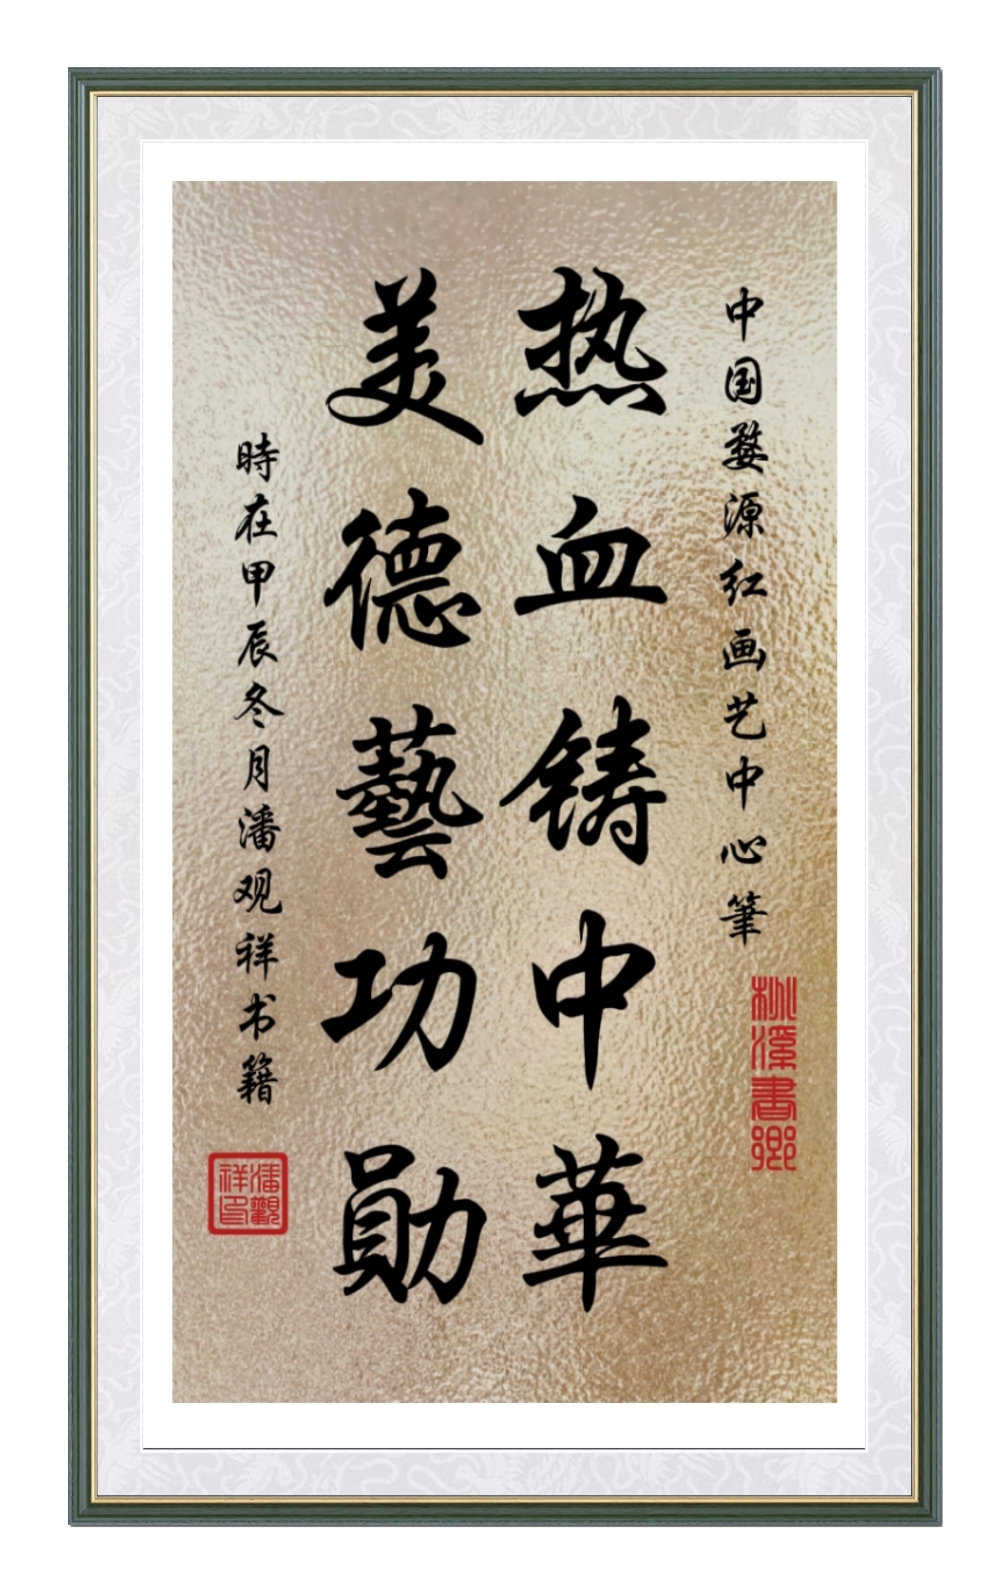 中国婺源红画艺中心筆
桃溪書鄉
热血铸中華
美德藝功勛
時在甲辰冬月潘观祥书籍
潘觀祥印